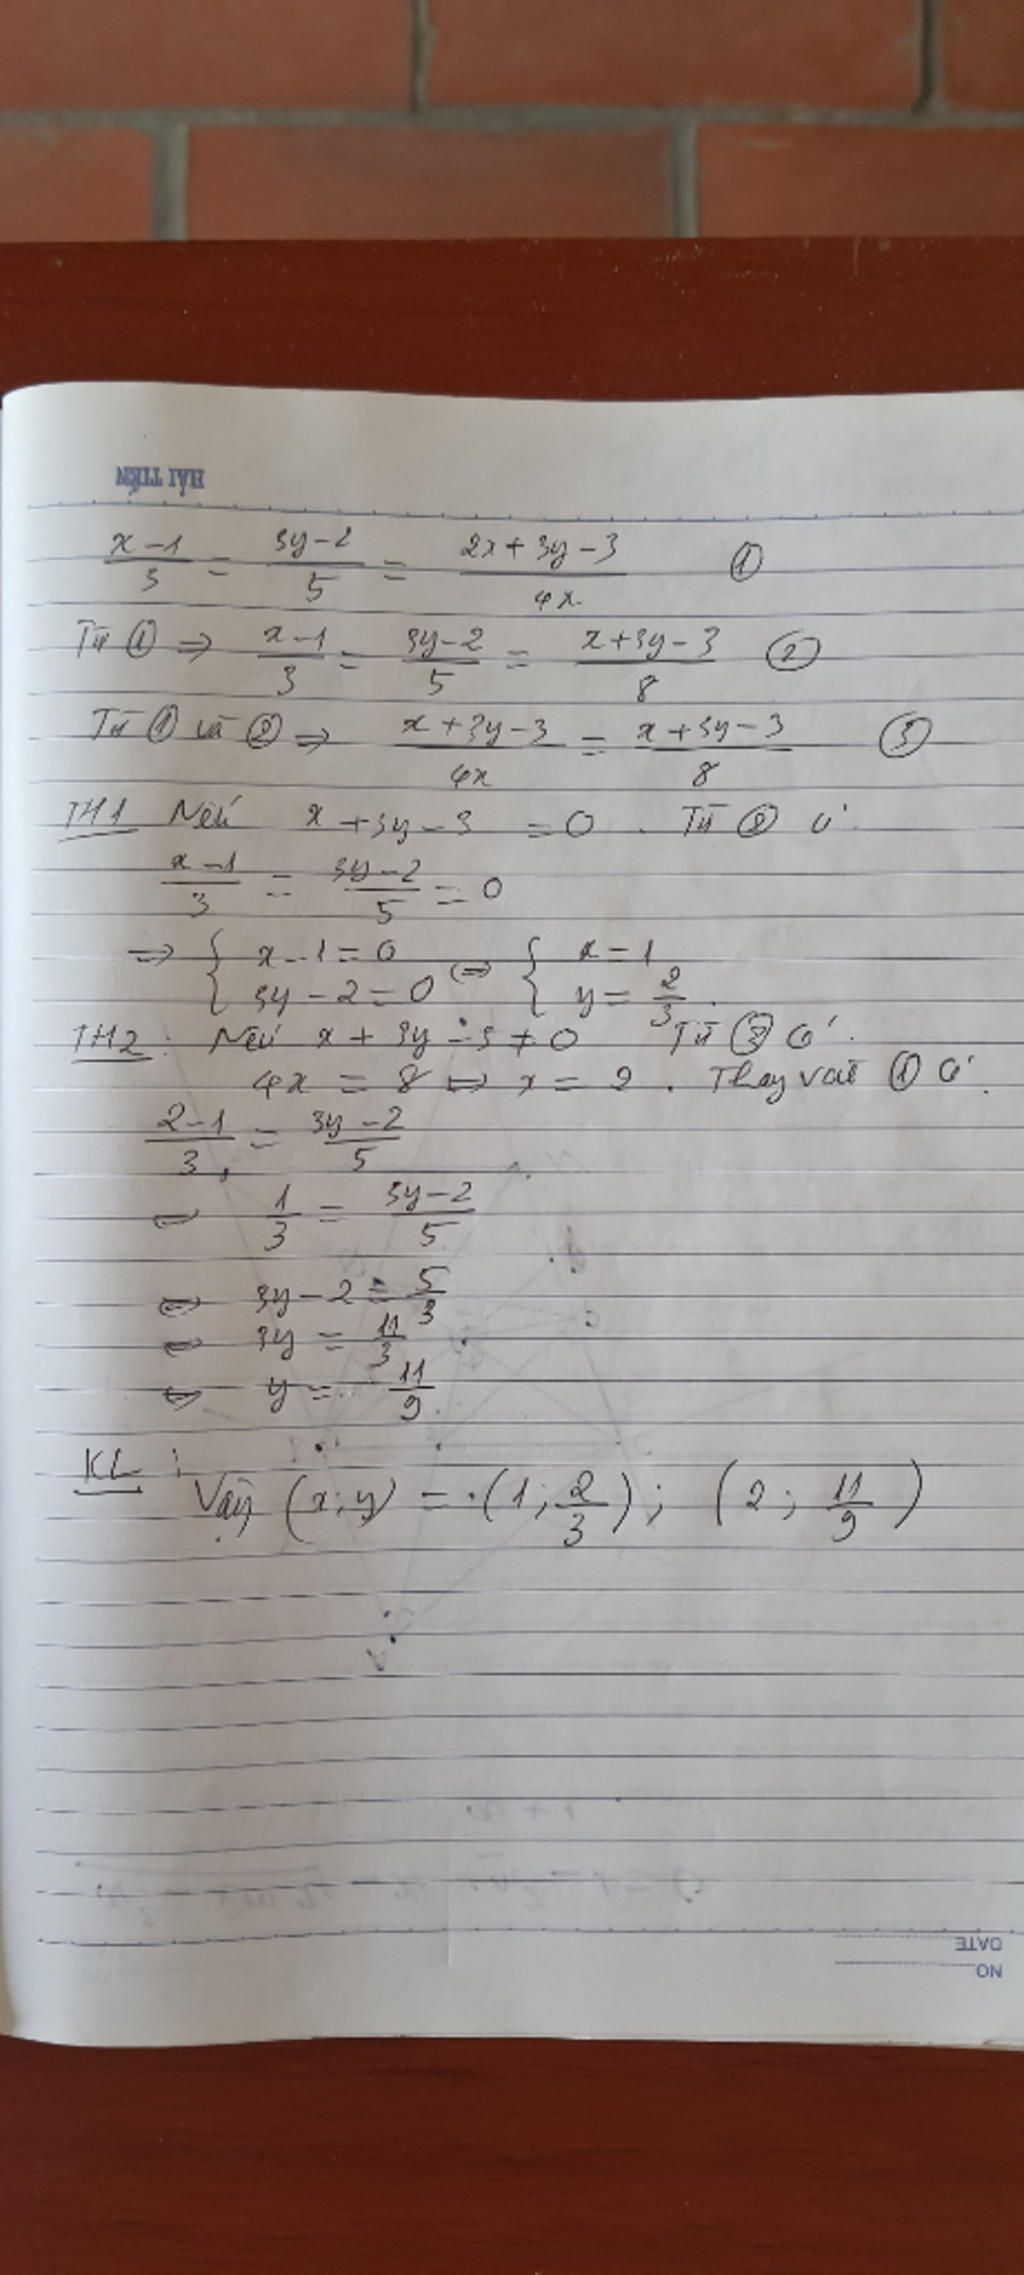 HẢI TIẾN
x-1/3 = 3y-2/5 = 2x+3y-3/4x ①
Từ ① ⇒ x-1/3 = 3y-2/5 = x+3y-3/8 ②
Từ ① và ② ⇒ x+3y-3/4x = x+3y-3/8 ③
TH1 Nếu x+3y-3 = 0. Từ ② có
x-1/3 = 3y-2/5 = 0
⇒ { x-1=0 ⇔ { x=1
3y-2=0 y=2/3.
TH2: Nếu x+3y-3≠0 Từ ③ có
4x = 8 ⇔ x = 2. Thay vào ① có.
2-1/3 = 3y-2/5
⇔ 1/3 = 3y-2/5
⇔ 3y-2 = 5/3
⇔ 3y = 11/3
⇔ y = 11/9.
KL:
Vậy (x;y) = (1; 2/3); (2; 11/9)
DATE
NO